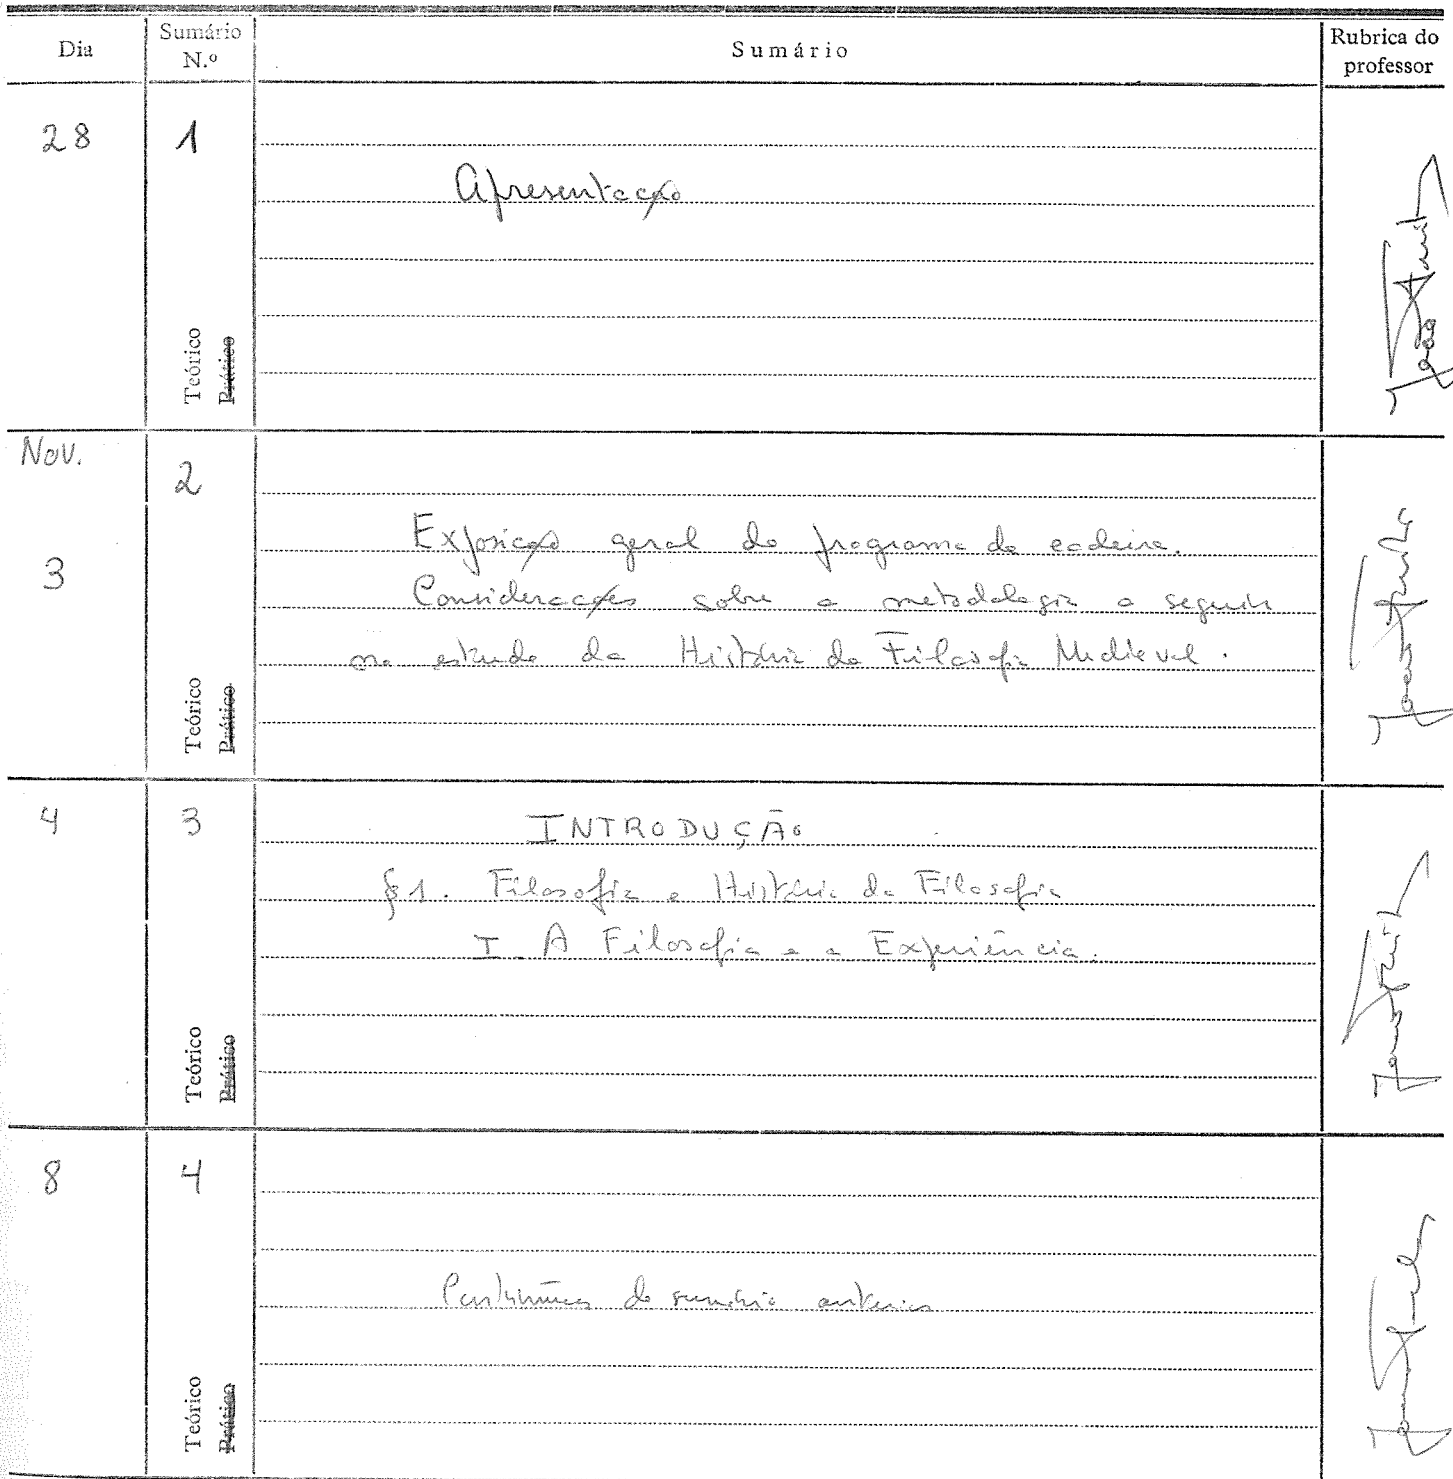 Dia
Sumário
N.º
Sumário
Rubrica do
professor
28
1
Apresentação
Teórico
Prático
Nov.
3
2
Exposição geral do programa da cadeira.
Considerações sobre a metodologia a seguir
no estudo da História da Filosofia Medieval.
Teórico
Prático
4
3
INTRODUÇÃO
§1. Filosofia e História da Filosofia
I. A Filosofia e a Experiência.
Teórico
Prático
8
4
Continuação do sumário anterior
Teórico
Prático